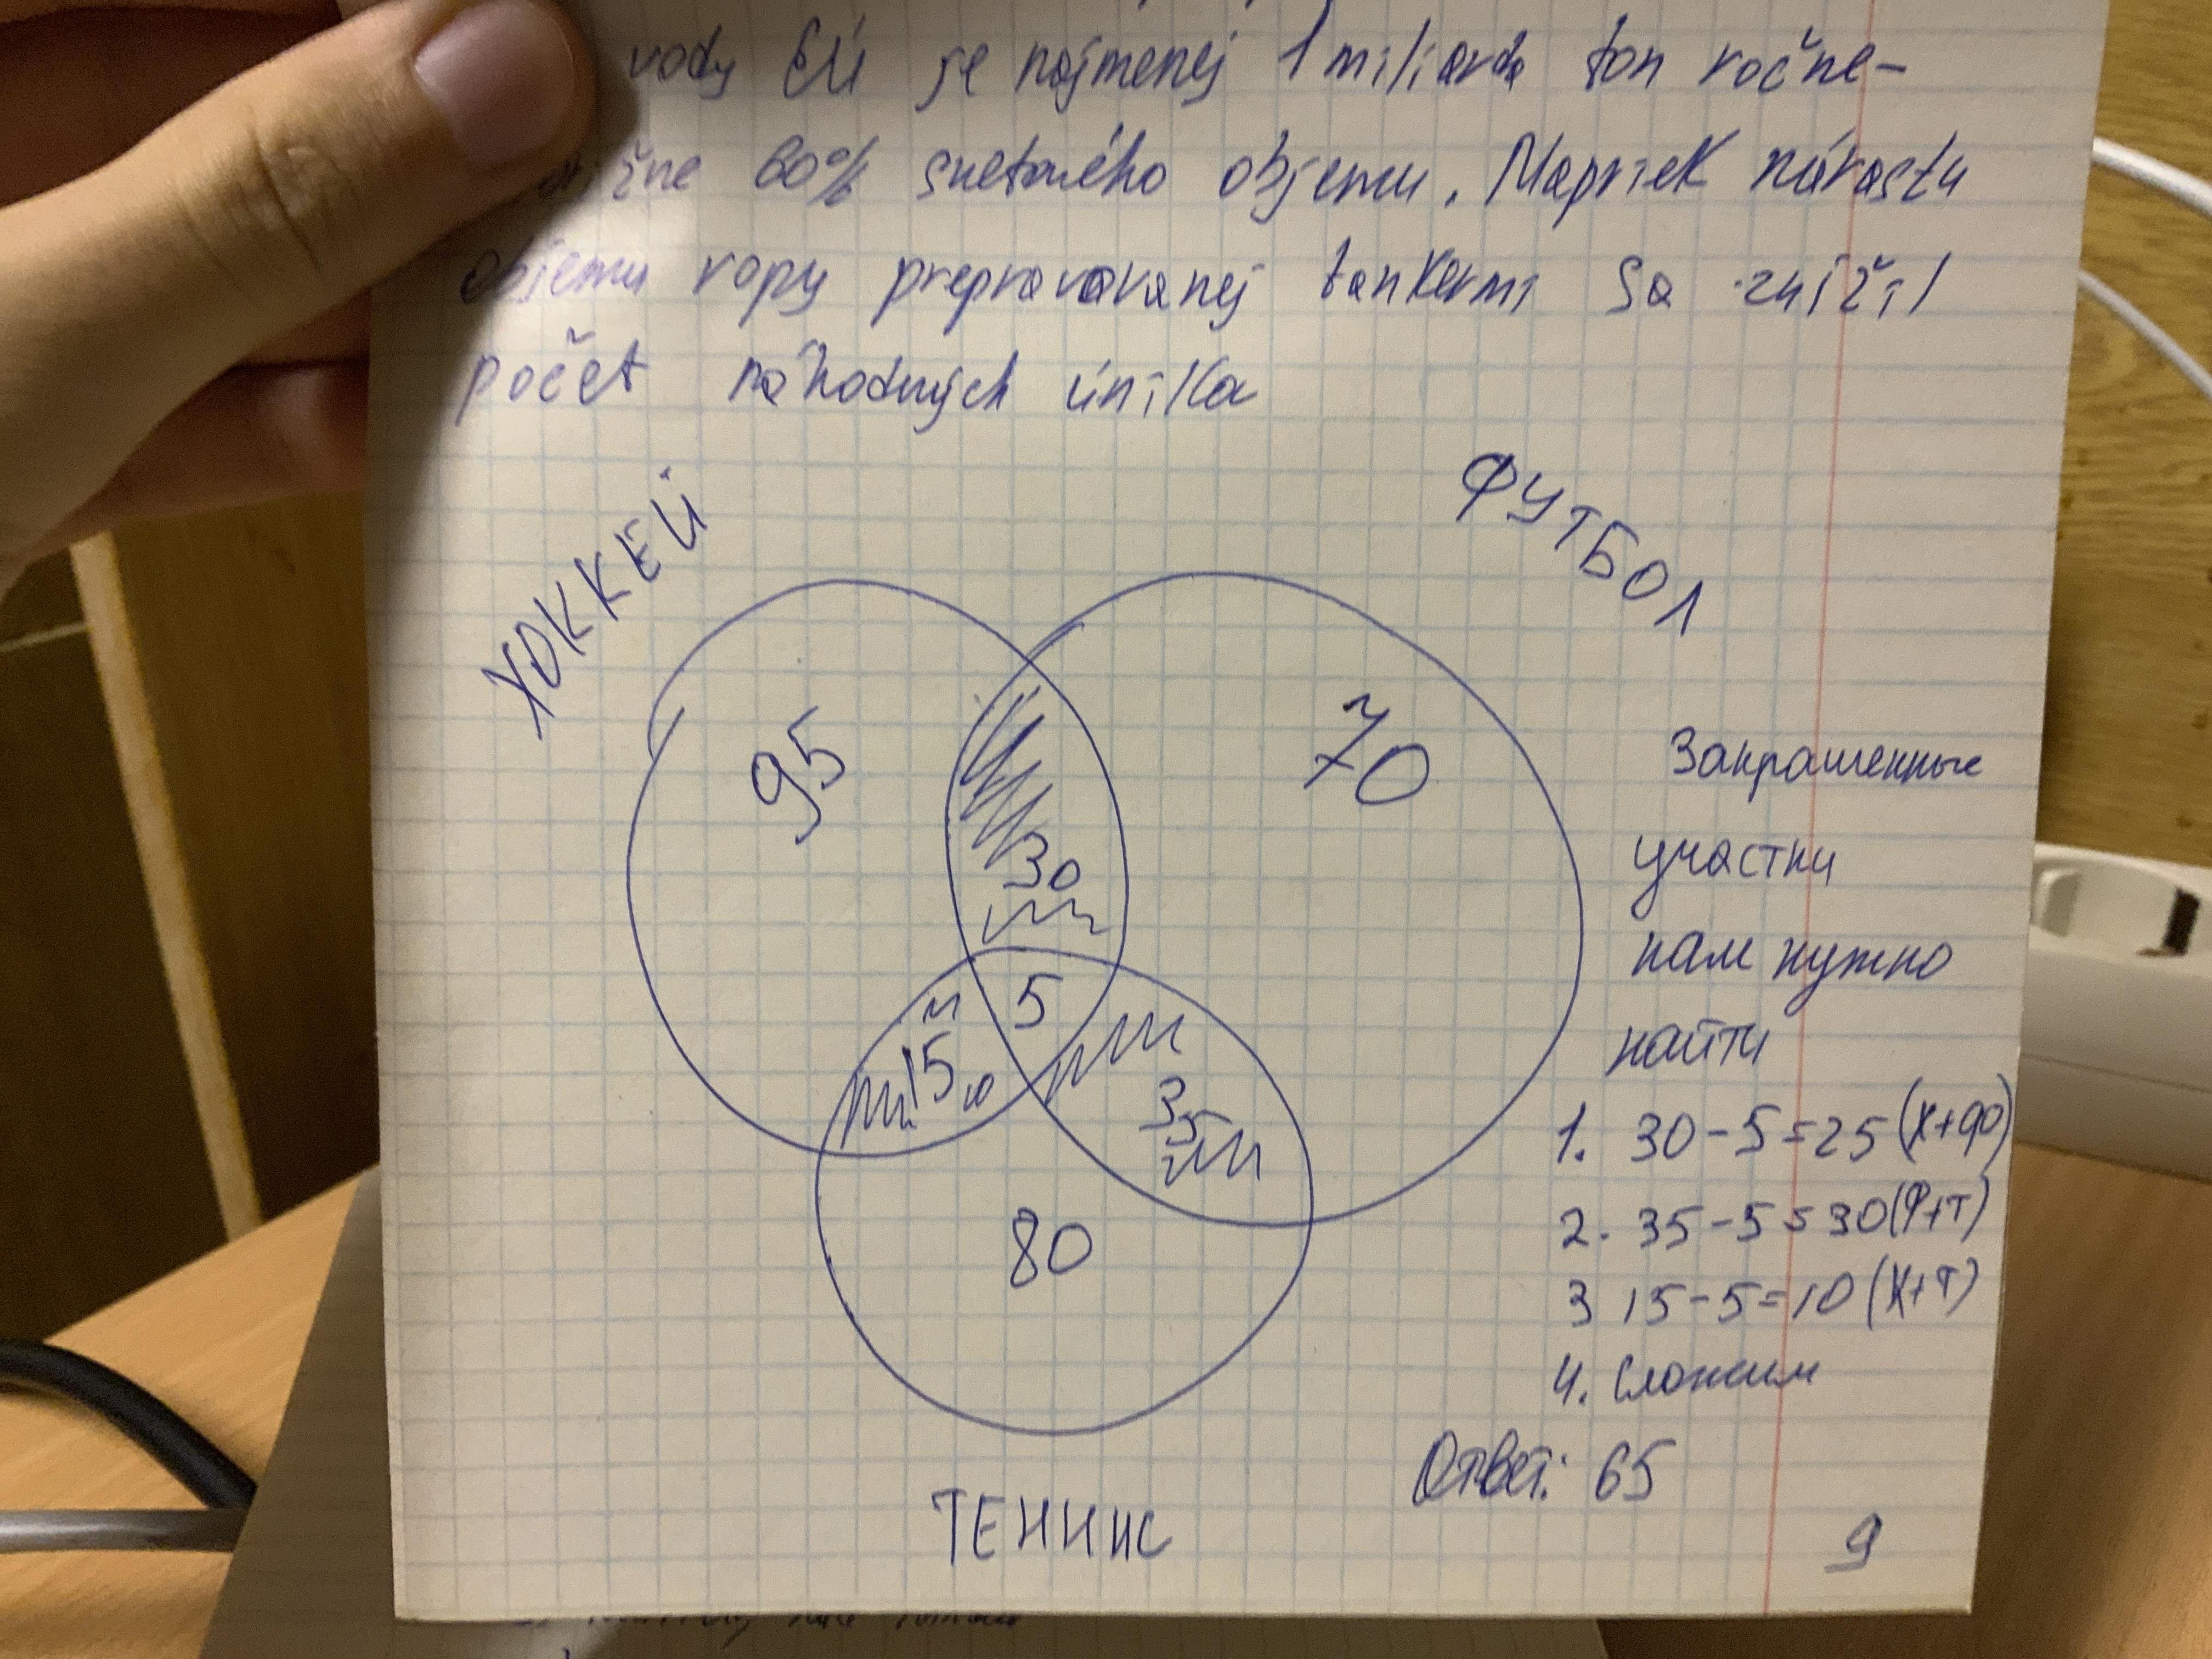 vody EÚ je najmenej 1 miliarda ton ročne-
60% svetového objemu. Napriek nárastu
objemu ropy prepravovanej tankermi sa znížil
počet náhodných únika
ХОККЕЙ
ФУТБОЛ
95
70
30
5
15
35
80
ТЕННИС
Закрашенные
участки
нам нужно
найти
1. 30-5=25 (х+ф)
2. 35-5=30(Ф+т)
3 15-5=10 (х+т)
4. Сложим
Ответ: 65
9